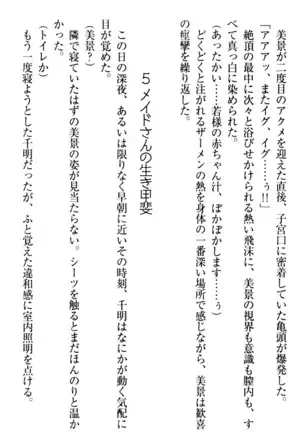 美景が二度目のアクメを迎えた直後、子宮口に密着していた亀頭が爆発した。
「アアアッ、またイグ、イグ……ぅ!!」
絶頂の最中に次々と浴びせかけられる熱い飛沫に、美景の視界も意識も膣内も、す
べて真っ白に染められた。
(あったかい……若様の赤ちゃん汁、ぽかぽかします……ぅぅ)
どくどくと注がれるザーメンの熱を身体の一番深い場所で感じながら、美景は歓喜
の痙攣を繰り返した。
5 メイドさんの生き甲斐
この日の深夜、あるいは限りなく早朝に近いその時刻、千明はなにかが動く気配に
目が覚めた。
(美景?)
隣で寝ていたはずの美景の姿が見当たらない。シーツを触るとまだほんのりと温か
かった。
(トイレか)
もう一度寝ようとした千明だったが、ふと覚えた違和感に室内照明を点ける。